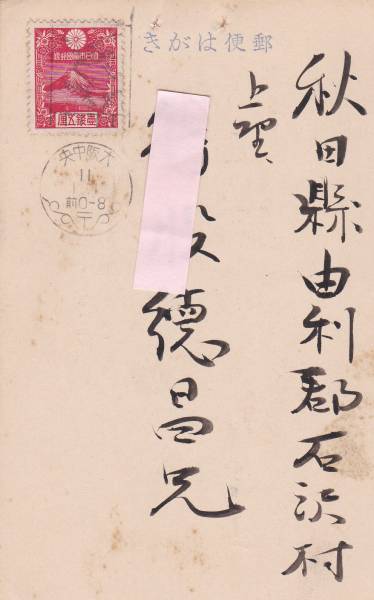 郵便はがき
大日本帝國郵便
壹錢五厘
大阪中央
11
前0-8
秋田縣由利郡石沢村
上野
德昌兄